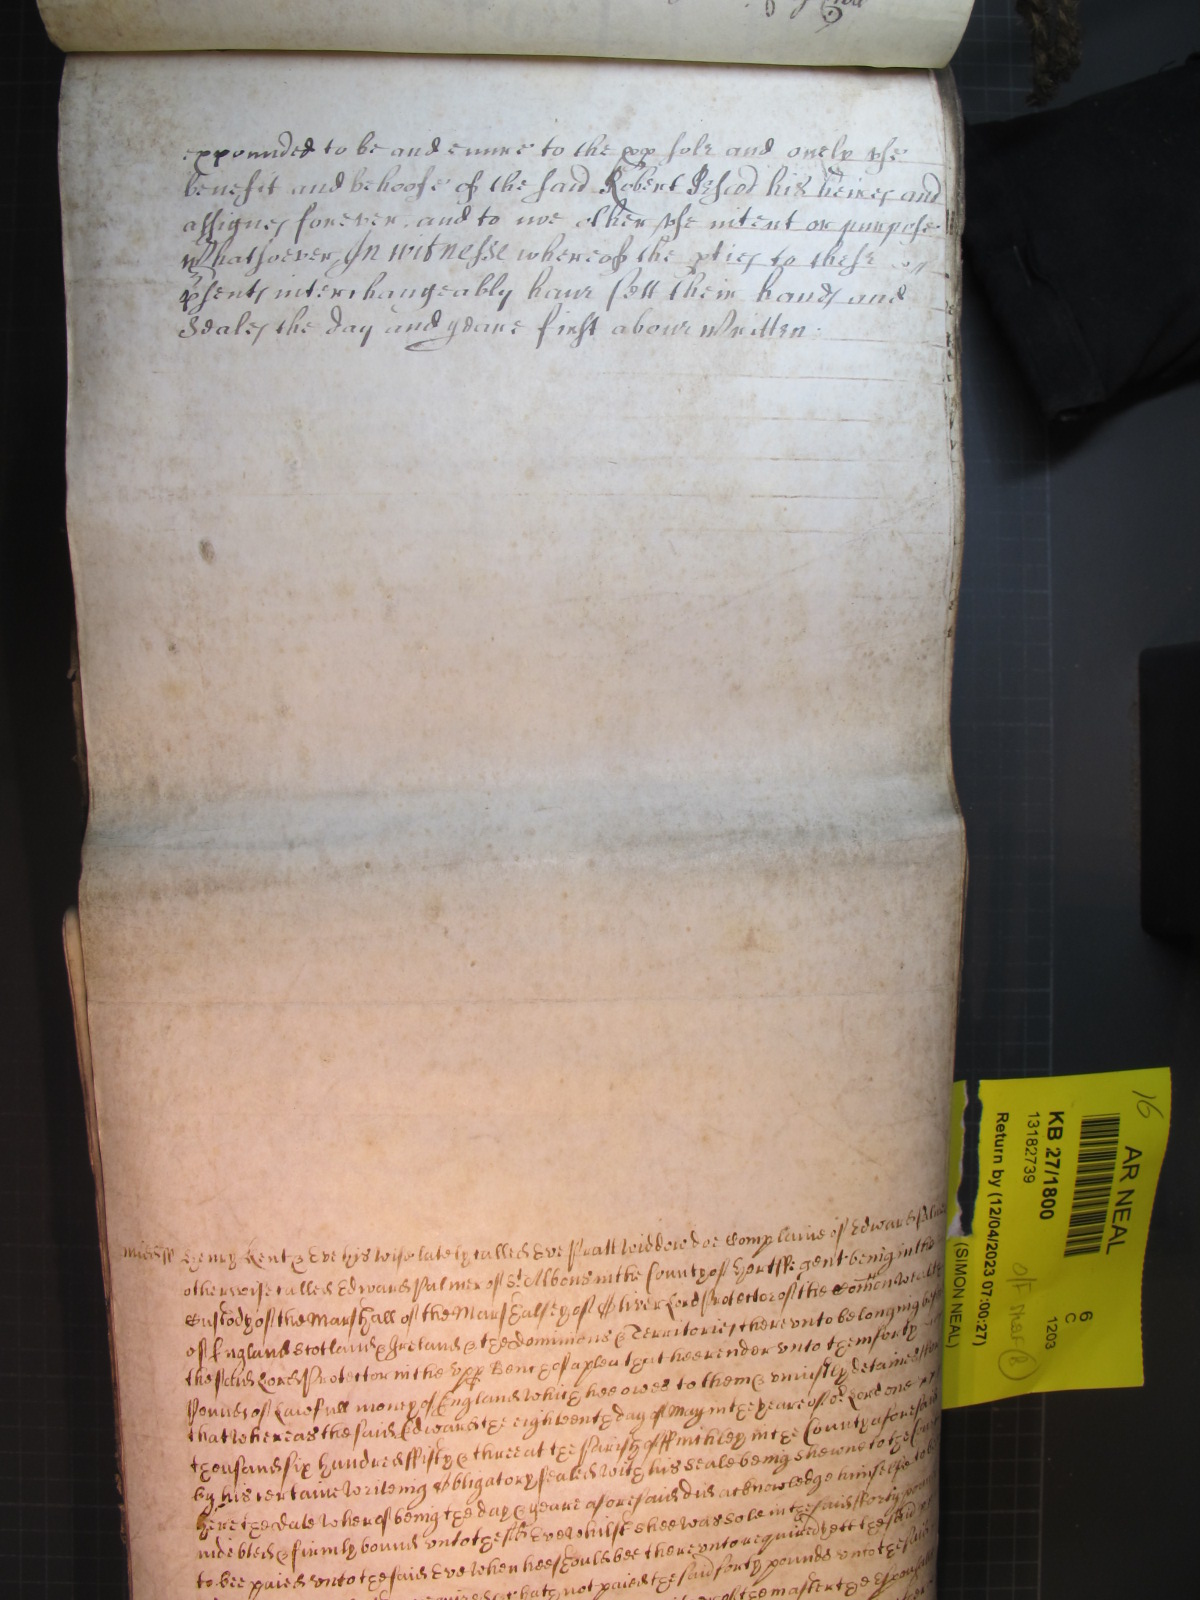 expounded to be and enure to the pp sole and onely use
benefit and behoofe of the said Robert Pescod his heires and
assignes forever and to noe other use intent or purpose
Whatsoever In witnesse whereof the pties to these
psents interchangeably have sett their hands and
Seales the day and yeare first above written
Midds ss Henry Kent & Eve his wife lately called Eve Pratt widdow doe Complaine of Edward Palmer
otherwise called Edward Palmer of St Albons in the County of Hertff gent being in the
Custody of the Marshall of the Marshalsey of Oliver Lord Protector of the Comon wealth
of England Scotland & Ireland & the dominions & Territories thereunto belonging
the said Lord Protector in the upp Bench of a plea that hee render unto them forty
Pounds of Lawfull money of England which hee owes to them & uniustly detaines
that whereas the said Edward the eighteenth day of May in the yeare of or Lord one
thousand six hundred ffifty & three at the Parish of ffinchley in the County aforesaid
by his certaine writeing obligatory sealed with his seale being shewne to the Court
here the date whereof being the day & yeare aforesaid did acknowledge himselfe to
indebted & firmly bound unto the sd Eve whilst shee was sole in the said fforty pounds
to bee paied unto the said Eve when hee should bee thereunto required yett the said
hath not paied the said forty pounds unto the said
of the master the Espousalls
AR NEAL
KB 27/1800
13182739
Return by (12/04/2023 07:00:27)
(SIMON NEAL)
6
C
1203
16